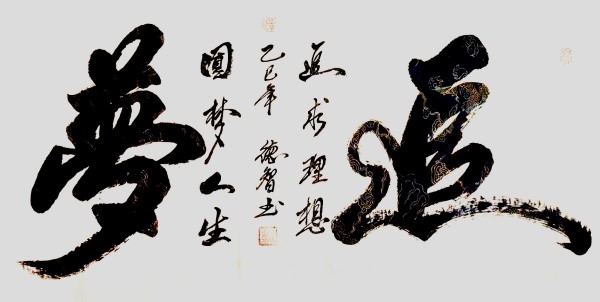 追
追求理想
圆梦人生
乙巳年 德智书
夢